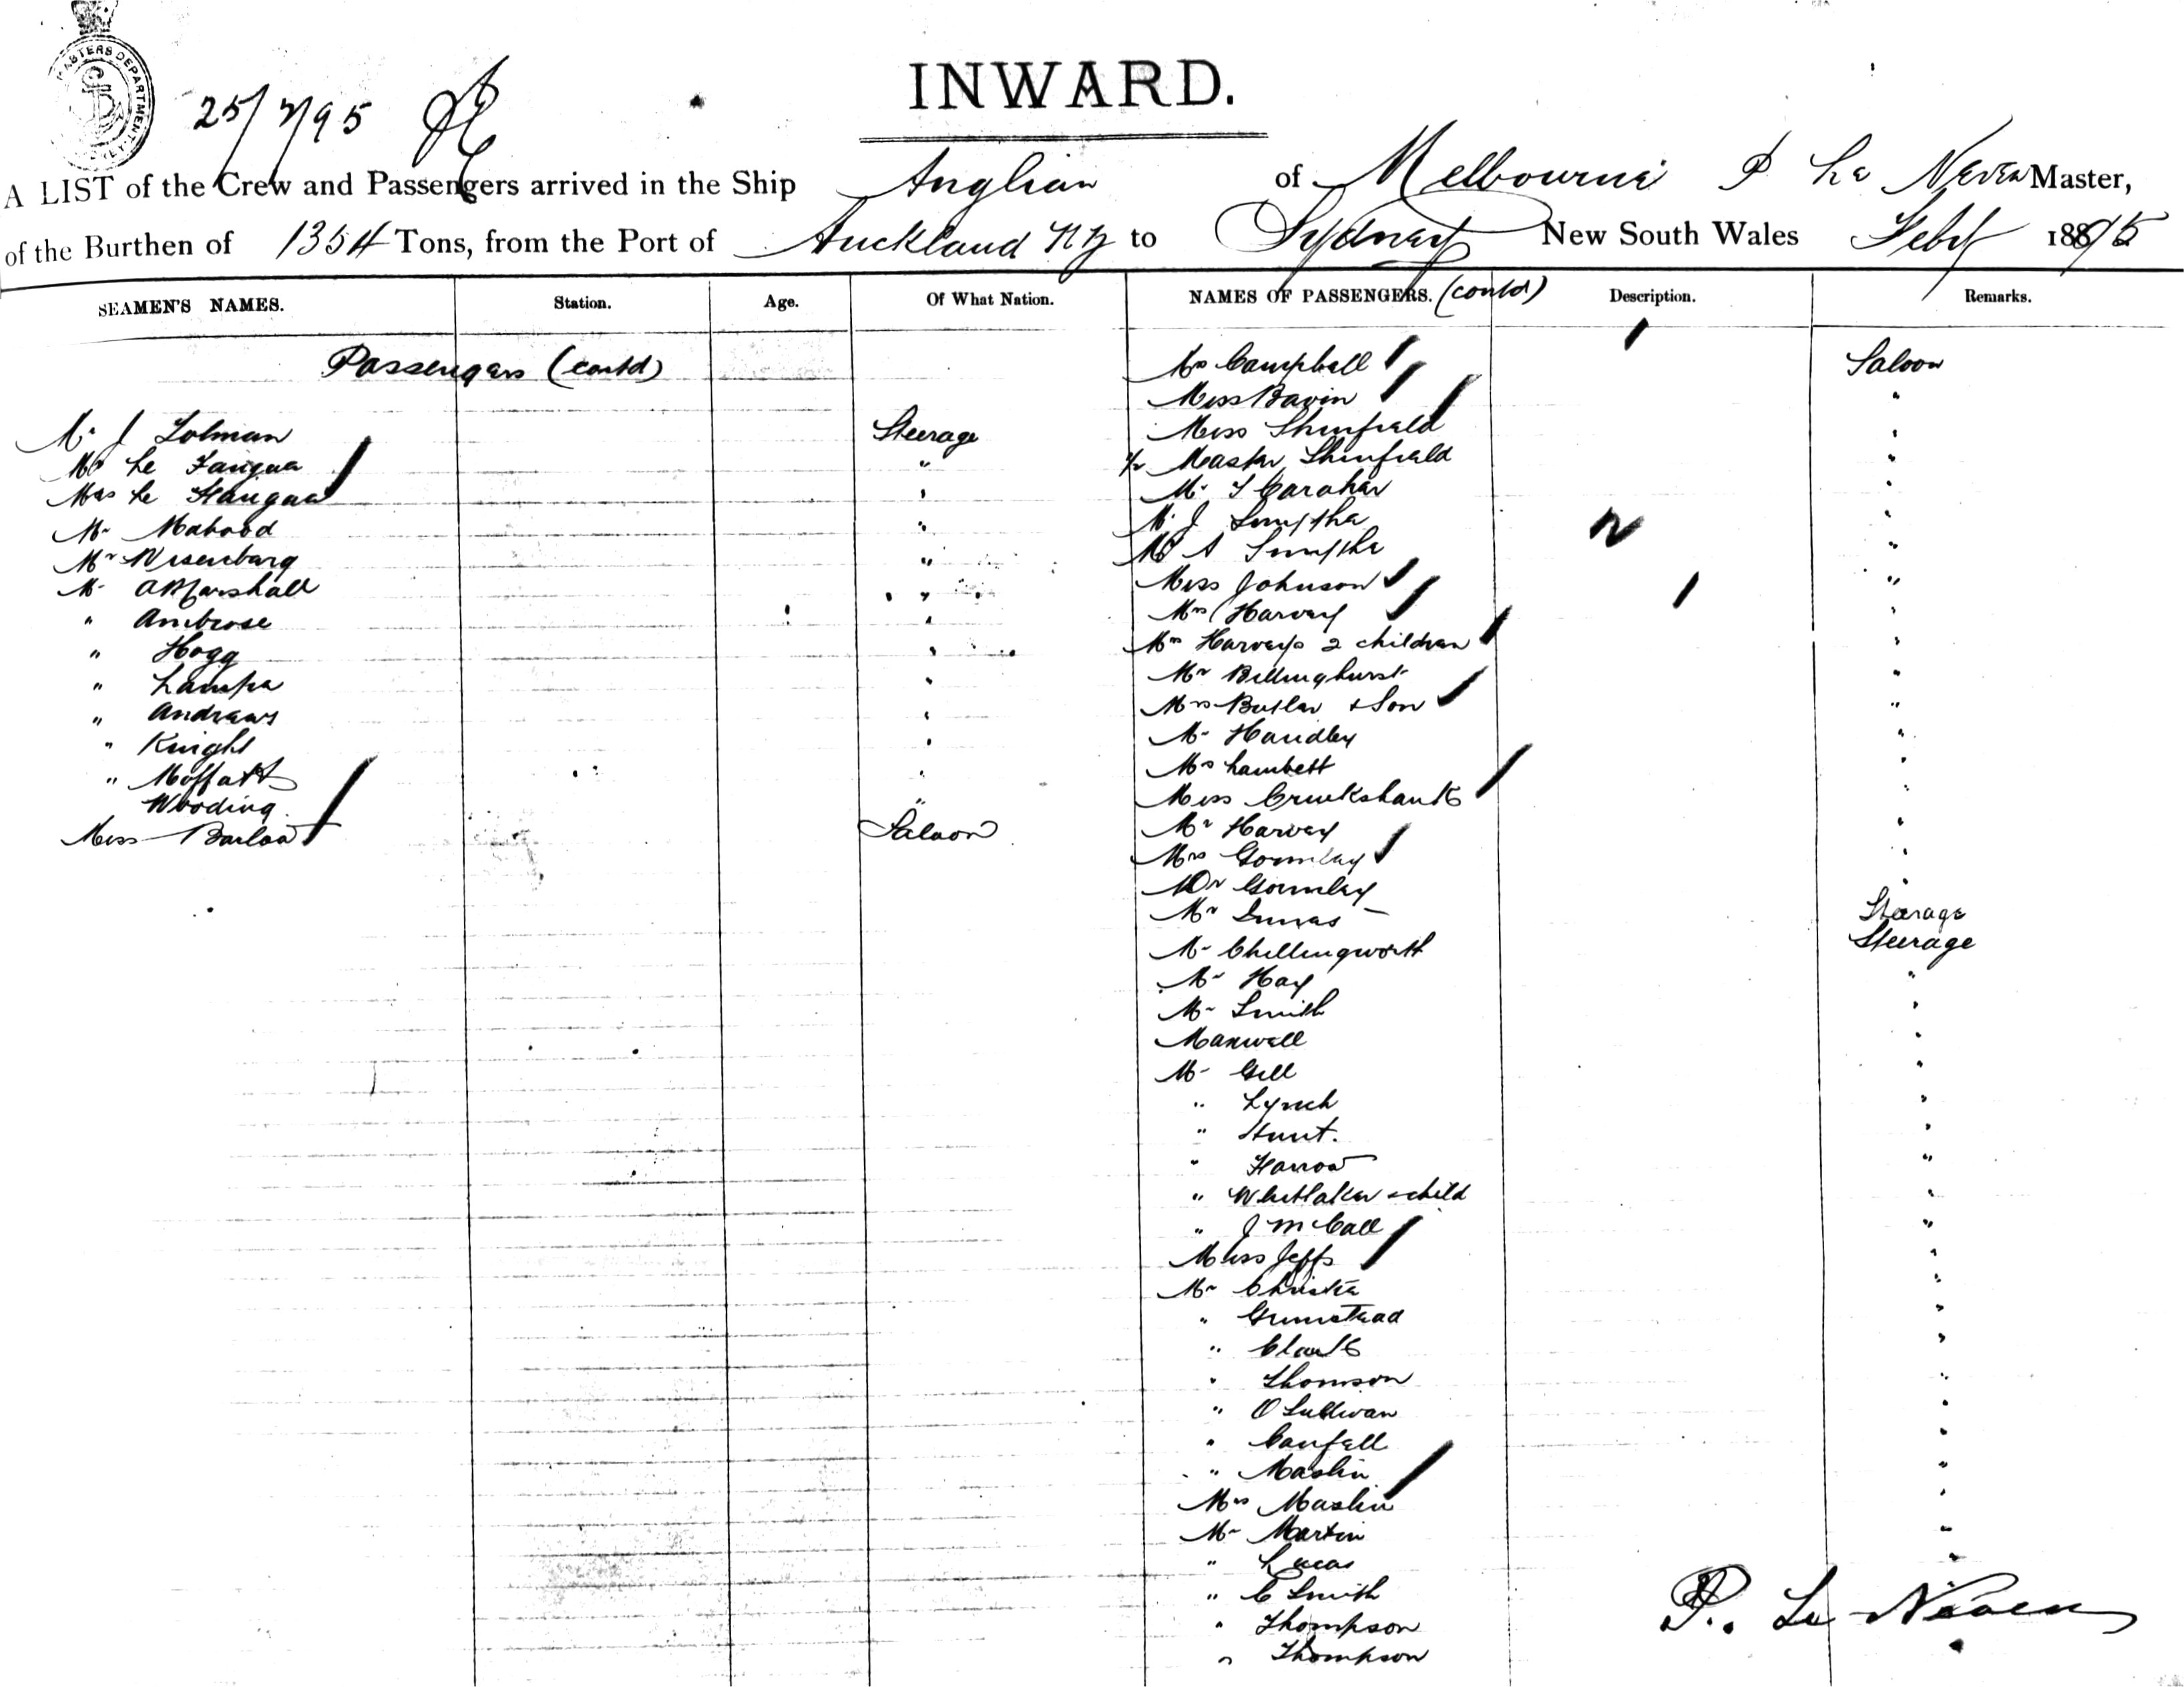 MASTERS DEPARTMENT
25/2/95
INWARD.
A LIST of the Crew and Passengers arrived in the Ship Anglian of Melbourne P Le Neven Master,
of the Burthen of 1354 Tons, from the Port of Auckland NZ to Sydney New South Wales Feby 1895
SEAMEN'S NAMES. Station. Age. Of What Nation. NAMES OF PASSENGERS. (contd) Description. Remarks.
Passengers (contd)
Mr J Lolman Steerage
Mr Le
Mrs Le
Mr Mabood "
Mr Wisenbarg "
Mr A Marshall "
" Ambrose "
" Hogg "
"
" Andrews "
" Knight "
" Moffatt "
Wooding "
Miss Barlow Saloon
Mrs Campbell Saloon
Miss Bavin "
Miss Shinfield "
1/2 Master Shinfield "
Mr T Caraher "
Mr J Smythe "
Mr A Smythe "
Miss Johnson "
Mrs Harvey "
Mrs Harveys 2 children "
Mr Billinghurst "
Mrs Butler & Son "
Mr Handley "
Mrs Lambett "
Miss Cruikshank "
Mr Harvey "
Mrs Gormley "
Mr Gormley "
Mr Steerage
Mr Chillingworth Steerage
Mr Hay "
Mr Smith "
Maxwell "
Mr Gill "
" Lynch "
" Hunt. "
" Harrow "
" Whittaker & child "
" J McCall "
Miss Jeffs "
Mr Christie "
" Grinstead "
" Clark "
" Thomson "
" O Sullivan "
" Canfell "
" Maslin "
Mrs Maslin "
Mr Martin "
" Lucas "
" C Smith
" Thompson
" Thompson
P. Le Neven